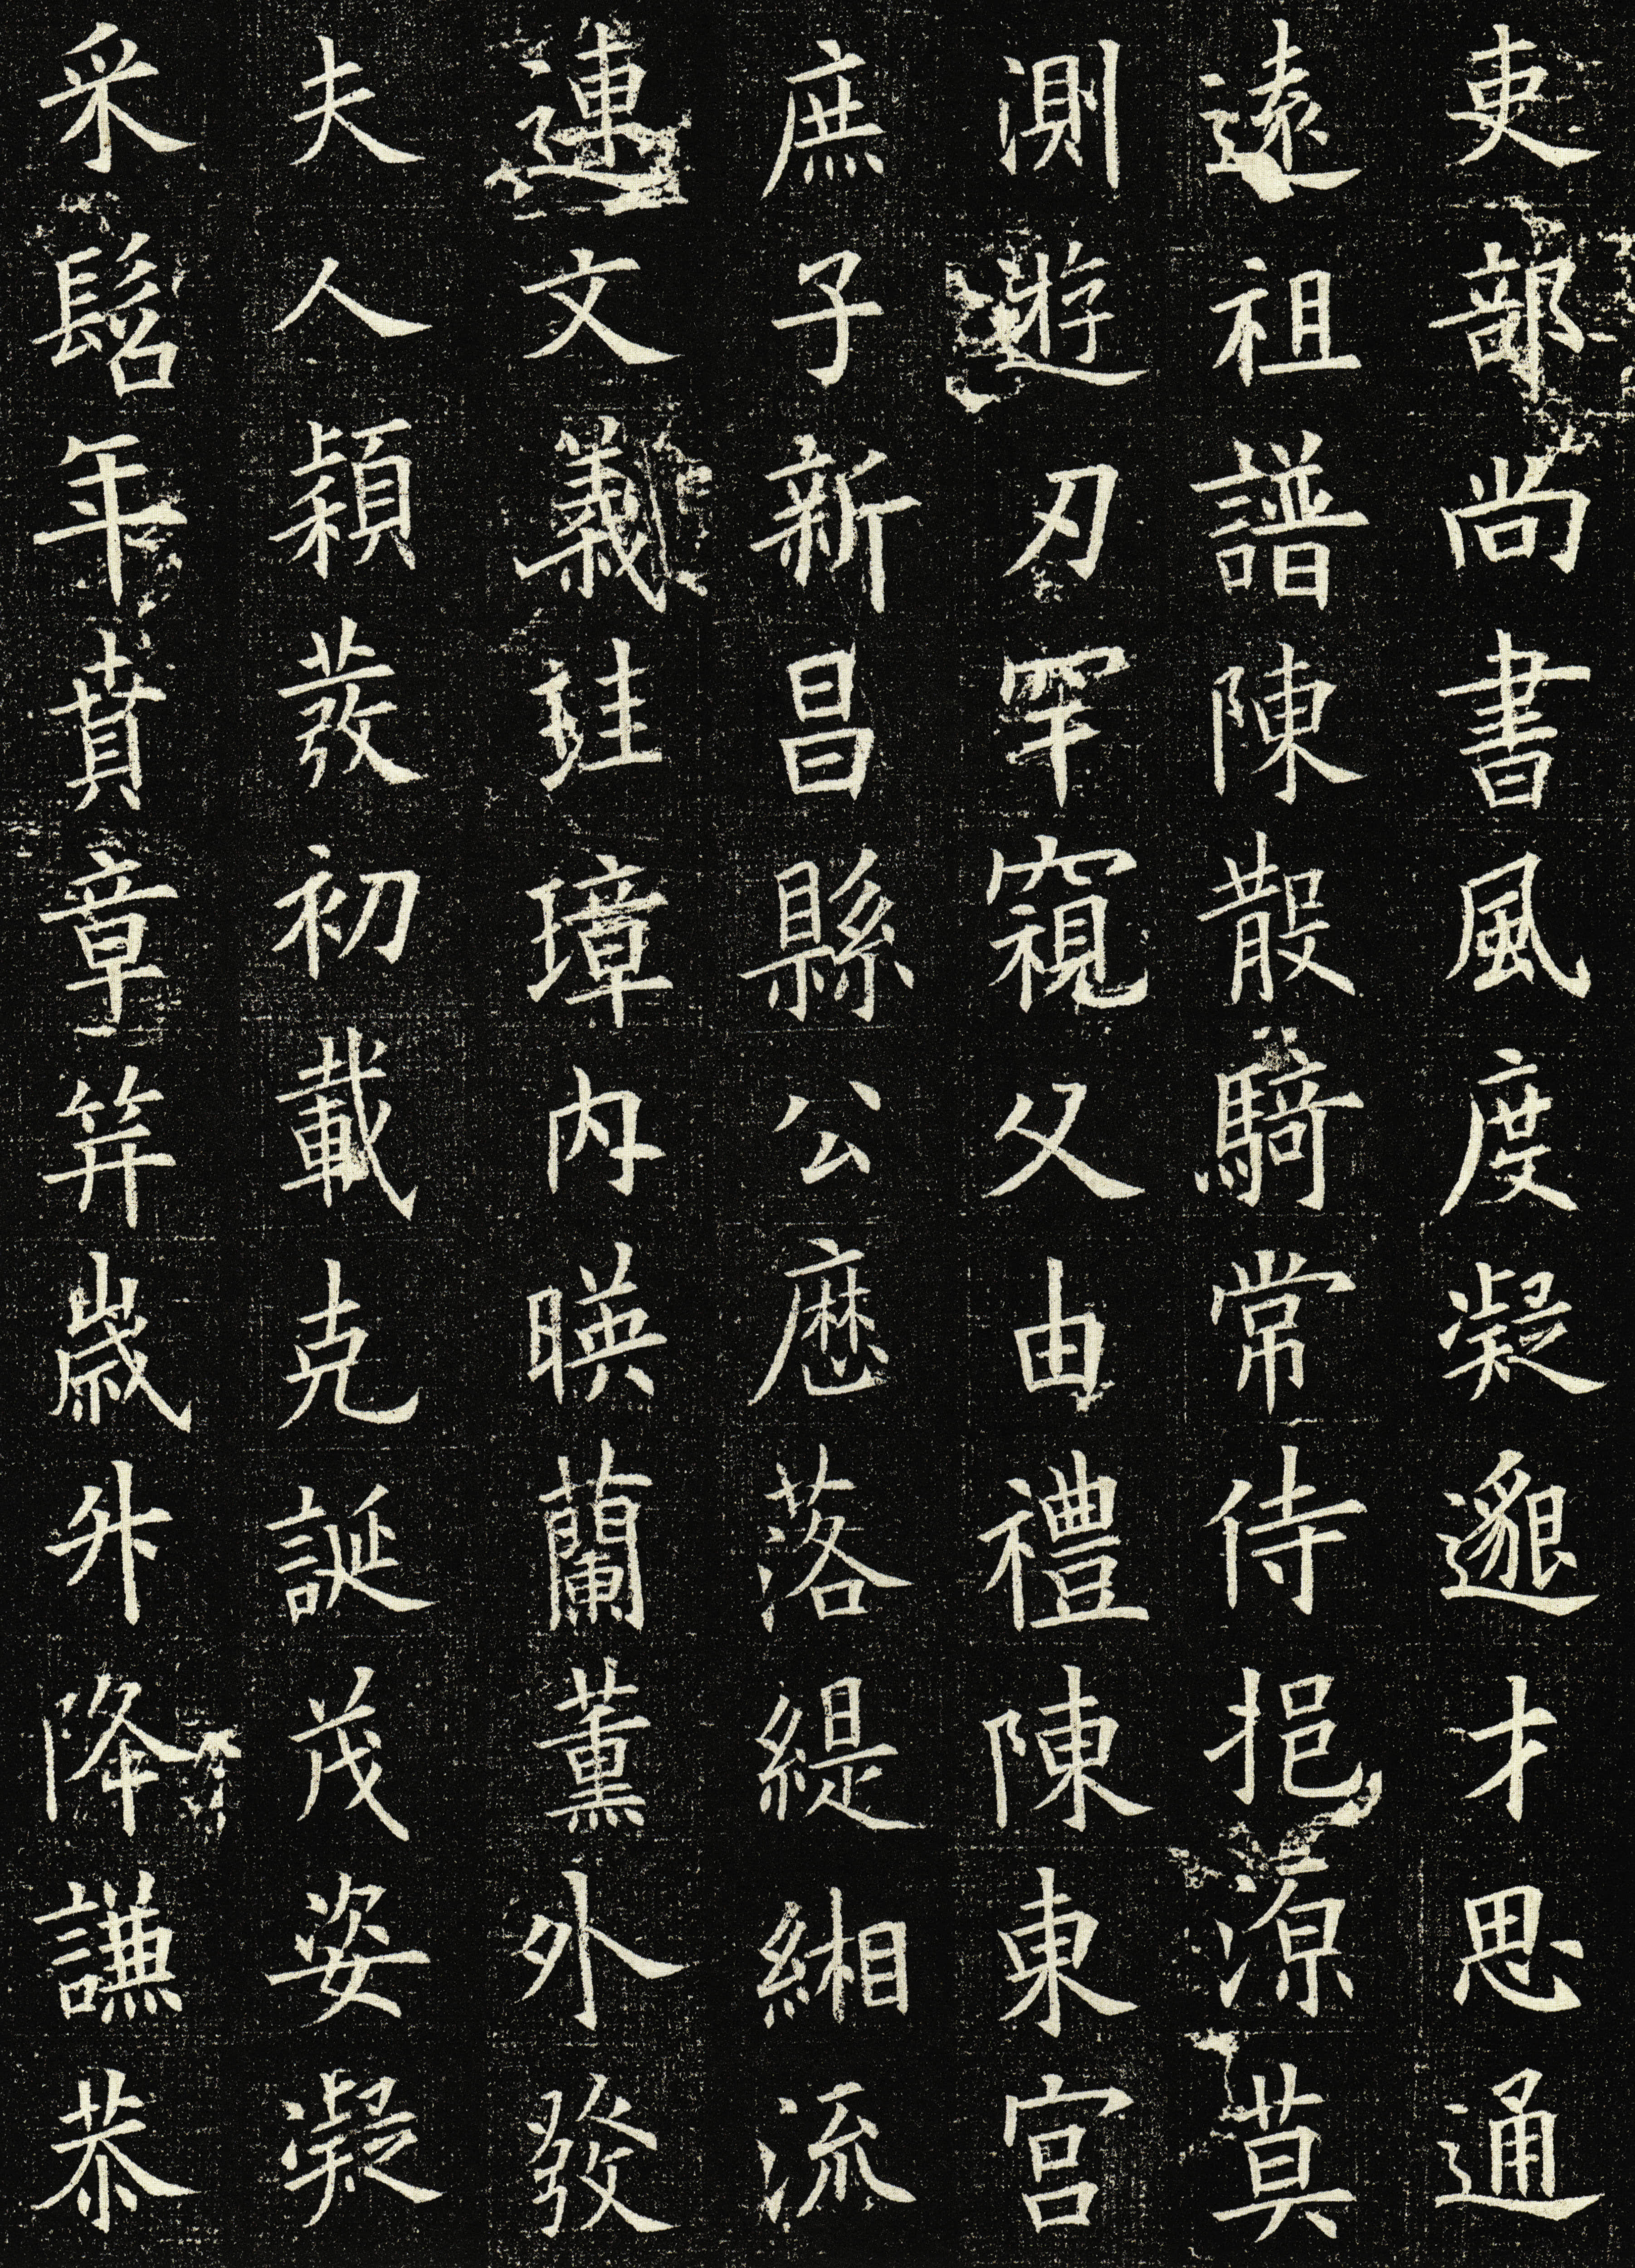 吏部尚書風度凝邈才思通
遠祖譜陳散騎常侍挹源莫
測遊刃罕窺父由禮陳東宮
庶子新昌縣公歷落緹緗流
連文義珪璋內暎蘭薰外發
夫人穎發初載克誕茂姿凝
采髫年賁章笄歲升降謙恭